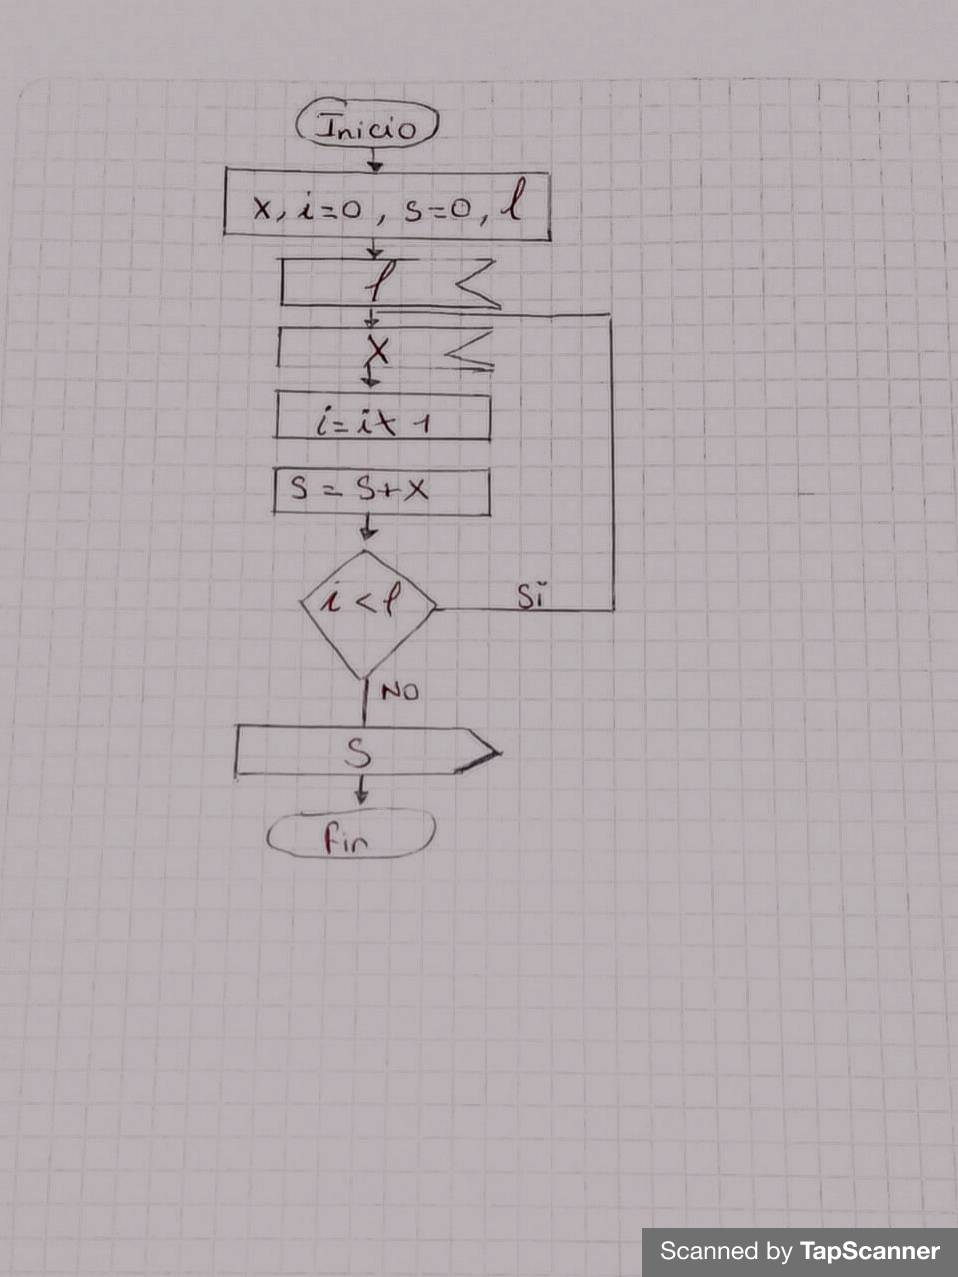 Inicio
x, i=0, s=0, l
l
x
i=i+1
S = S+X
i<l
Si
NO
S
fin
Scanned by TapScanner